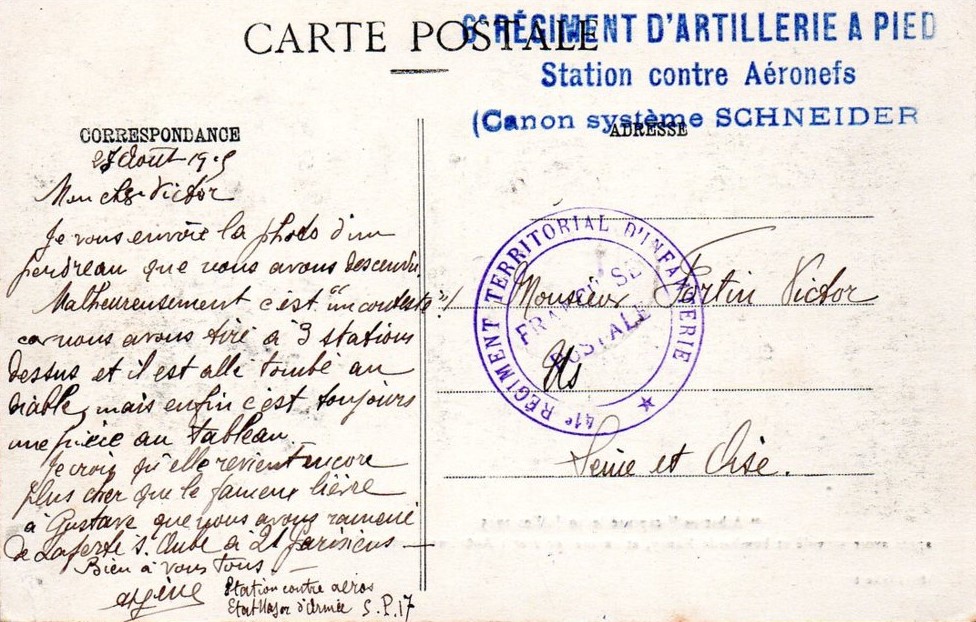 CARTE POSTALE
6e RÉGIMENT D'ARTILLERIE A PIED
Station contre Aéronefs
(Canon système SCHNEIDER
CORRESPONDANCE
27 Août 1915
Mon cher Victor
Je vous envoie la photo d'un
perdreau que nous avons descendu
Malheureusement c'est "incontesté"!
car nous avons tiré à 3 stations
dessus et il est allé tombé au
diable, mais enfin c'est toujours
une pièce au tableau.
Je crois qu'elle revient encore
plus cher que le fameux lièvre
à Gustave que nous avons ramené
de Laferté s. Aube à 21 Parisiens
Bien à vous tous.
Station contre aéros
Etat Major d'Armée S.P. 17
ADRESSE
Monsieur Fortin Victor
Us
Seine et Oise.
41e RÉGIMENT TERRITORIAL D'INFANTERIE
FRANCHISE
POSTALE